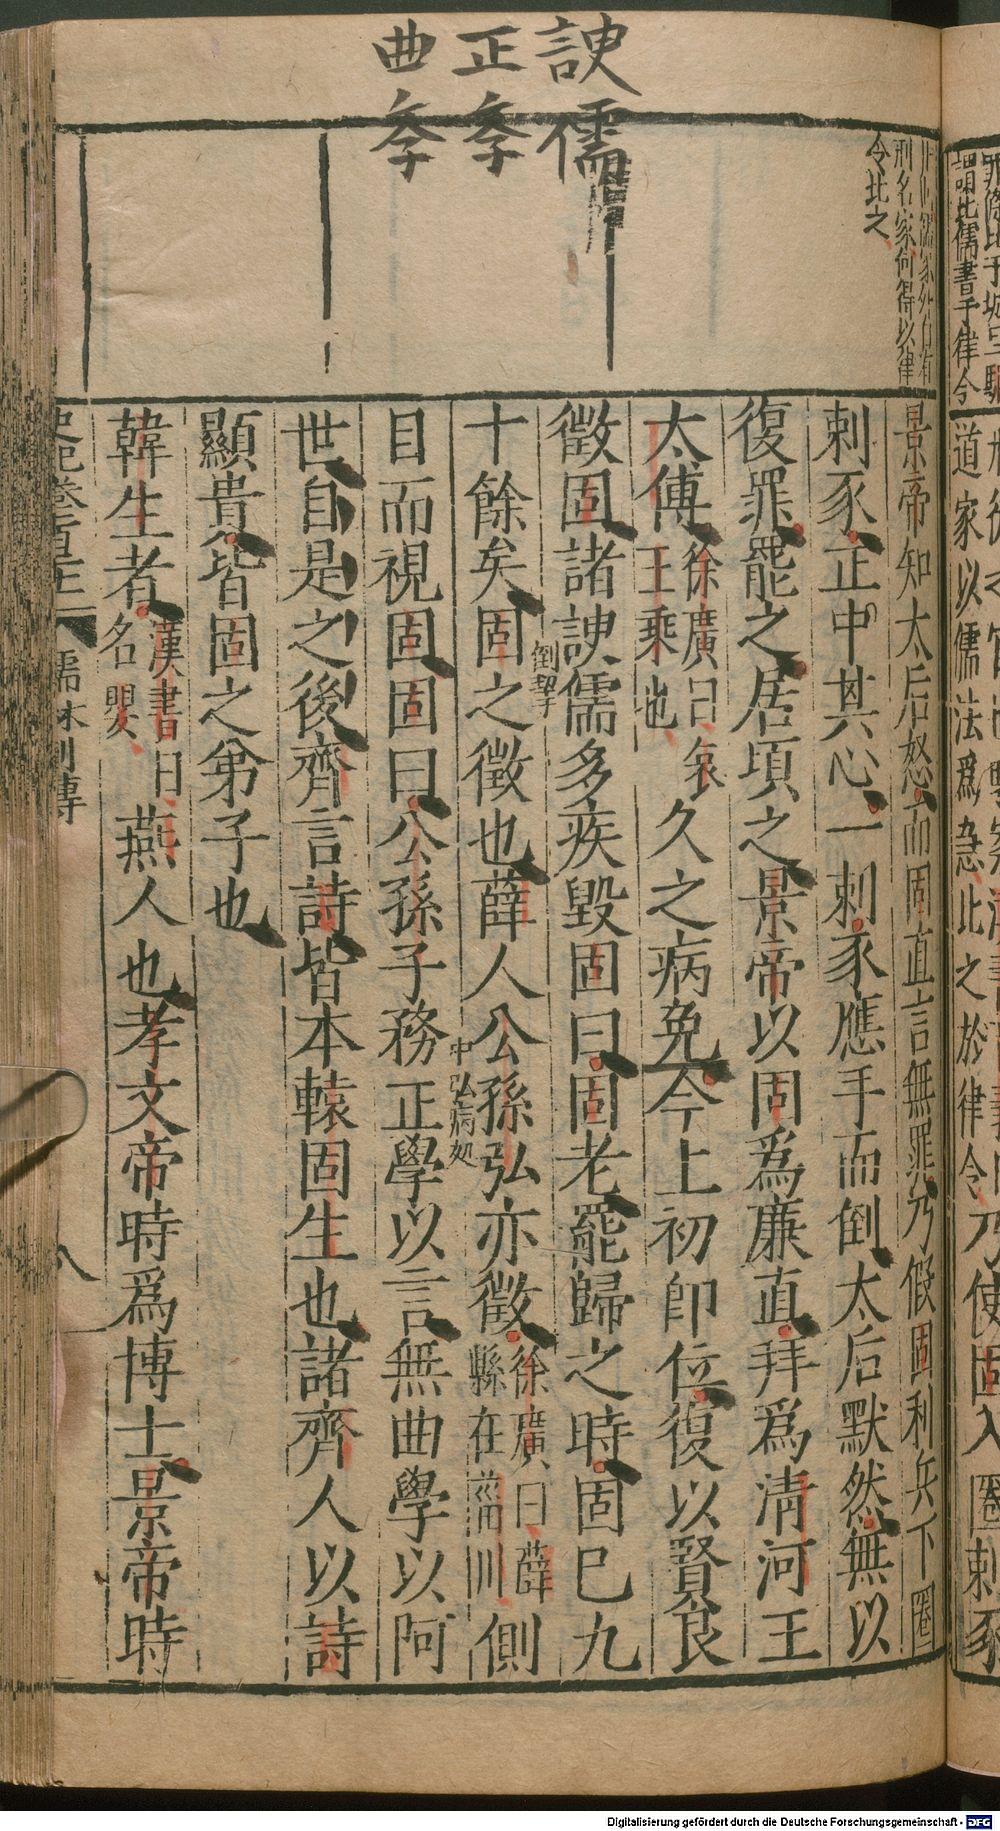 謂此儒書乎律令
道家以儒法爲急比之於律令乃使固入圈刺豕
刑名家何得以律
令比之
諛儒
正季
曲季
景帝知太后怒而固直言無罪乃假固利兵下圈
刺豕正中其心一刺豕應手而倒太后默然無以
復罪罷之居頃之景帝以固爲廉直拜爲清河王
太傅徐廣曰哀
王乘也久之病免今上初卽位復以賢良
徵固諸諛儒多疾毀固曰固老罷歸之時固已九
倒挈
十餘矣固之徵也薛人公孫弘亦徵徐廣曰薛
縣在菑川側
中弘病処
目而視固固曰公孫子務正學以言無曲學以阿
世自是之後齊言詩皆本轅固生也諸齊人以詩
顯貴皆固之弟子也
韓生者漢書曰
名嬰燕人也孝文帝時爲博士景帝時
儒林列傳
八
Digitalisierung gefördert durch die Deutsche Forschungsgemeinschaft - DFG